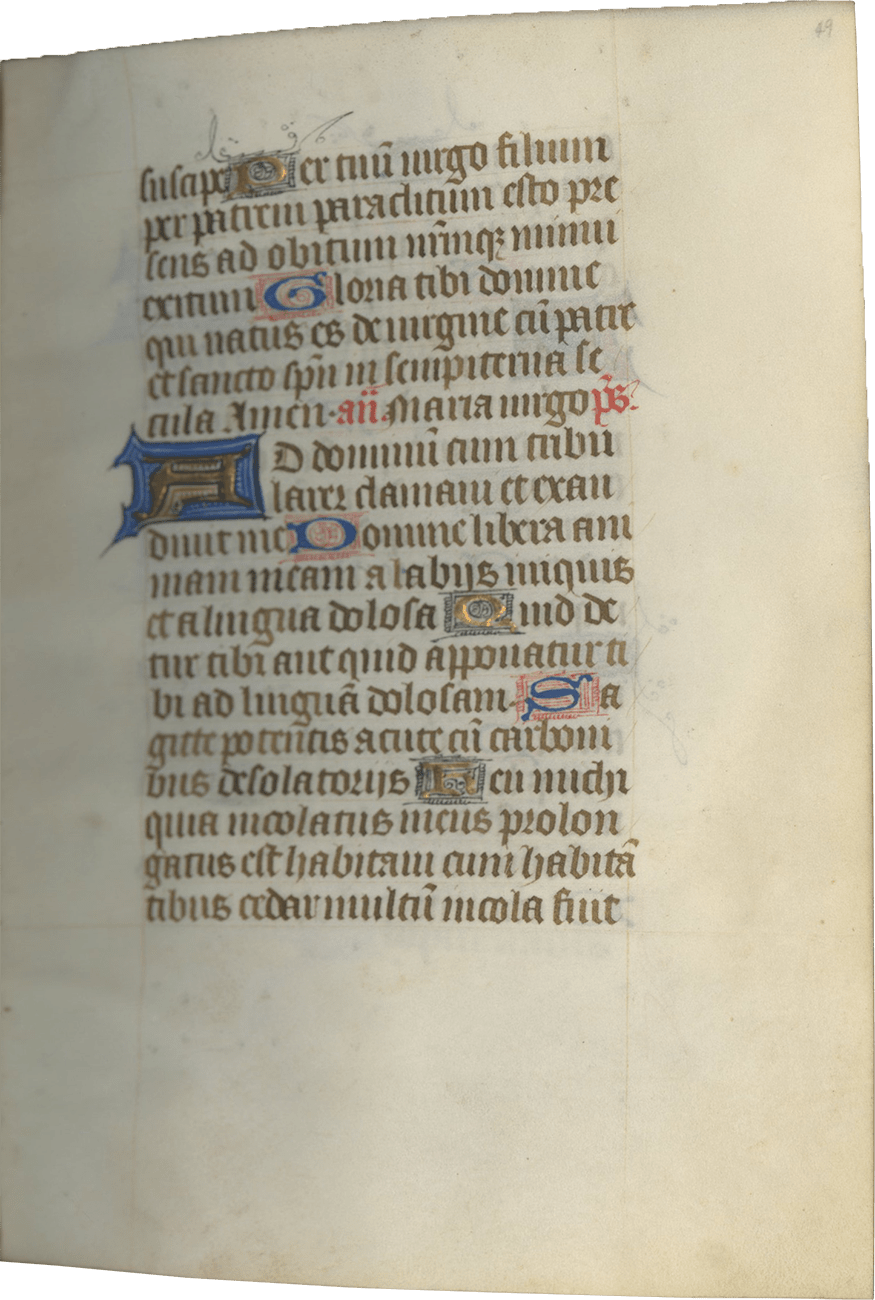 49
suscipe Per tuū uirgo filium
per patrem paraclitum esto pre
sens ad obitum nrm̄qꝫ nimiu
exitium Gloria tibi domine
qui natus es de uirgine cū patre
et sancto spū in sempiterna se
cula Amen. añ. Maria uirgo p̄s.
AD dominū cum tribu
larer clamaui et exau
diuit me Domine libera ani
mam meam a labijs iniquis
et a lingua dolosa Quid de
tur tibi aut quid apponatur ti
bi ad linguā dolosam. Sa
gitte potentis acute cū carboni
bus desolatorijs Heu michi
quia incolatus meus prolon
gatus est habitaui cum habitā
tibus cedar multū incola fuit